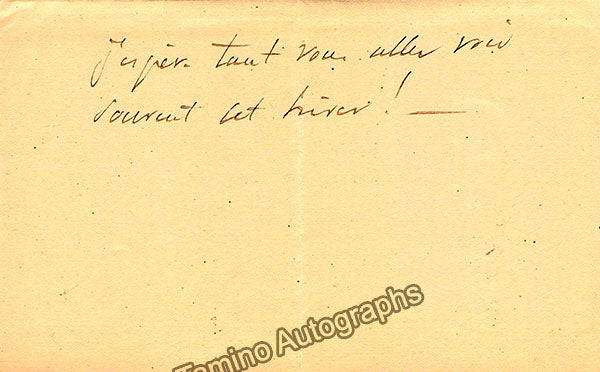 J'espère tant vous aller voir
souvent cet hiver! —
Tamino Autographs